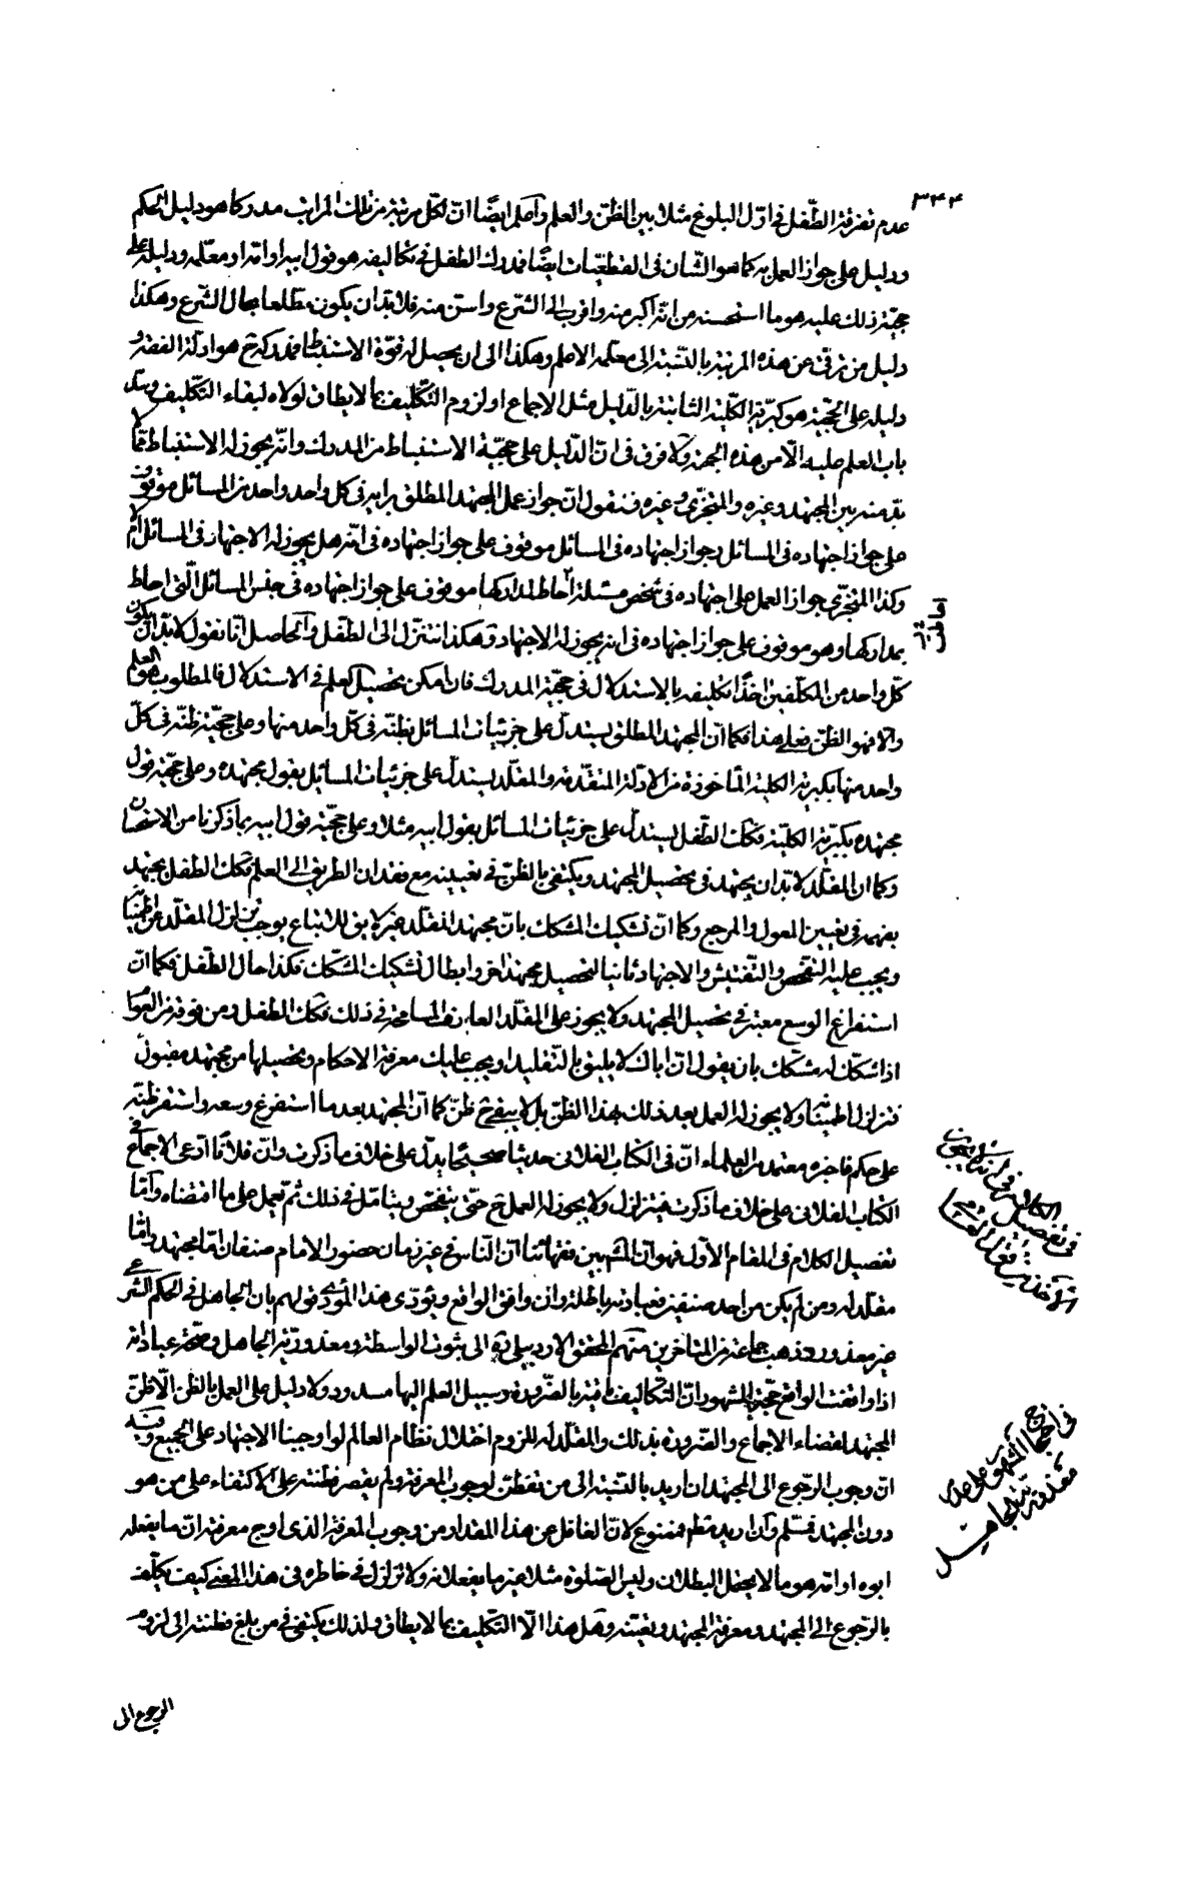 ٣٤٤
عدم تفرقة الطّفل فى اوّل البلوغ مثلا بين الظنّ والعلم واعلم ايضًا انّ لكلّ مرتبة من تلك المراتب مدركا هو دليل الحكم
ودليل على جواز العمل به كما هو الشّان فى القطعيّات ايضًا فمدرك الطفل فى تكاليفه هو قول ابيه او امّه او معلّمه ودليله على
حجيّة ذلك عليه هو ما استحسنه من انّه اكبر منه واقرب الى الشّرع واسنّ منه فلا بدّ ان يكون مطّلعا بحال الشّرع وهكذا
دليل من ترقّى عن هذه المرتبة بالنّسبة الى معلّمه الاعلم وهكذا الى ان يحصل له قوّة الاستنباط فمدركه ح هو ادلّة الفقه و
دليله على الحجيّة هو كبريه الكليّة الثابتة بالدّليل مثل الاجماع او لزوم التّكليف بما لا يطاق لولاه لبقاء التّكليف وسدّ
باب العلم عليه الّا من هذه الجهة ولا فرق فى انّ الدّليل على حجيّة الاستنباط من المدرك وانّه يجوز له الاستنباط ممّا لا
بدّ منه بين المجتهد وغيره والمتجزّى وغيره فنقول انّ جواز عمل المجتهد المطلق برايه فى كل واحد واحد من المسائل موقوف
على جواز اجتهاده فى المسائل وجواز اجتهاده فى المسائل موقوف على جواز اجتهاده فى انّه هل يجوز له الاجتهاد فى المسائل ام لا
وكذا المتجزّى جواز العمل على اجتهاده فى شخص مسئلة احاط بمداركها موقوف على جواز اجتهاده فى جنس المسائل الّتى احاط
بمداركها وهو موقوف على جواز اجتهاده فى انه يجوز له الاجتهاد وهكذا تتنزّل الى الطفل والحاصل انّا نقول لا بدّ ان يكون
كلّ واحد من المكلّفين اخذًا تكليفه بالاستدلال فى حجيّة المدرك فان امكن تحصيل العلم فى الاستدلال فالمطلوب هو العلم
والّا فهو الظنّ فعلى هذا فكما انّ المجتهد المطلق يستدلّ على جزئيات المسائل بظنّه فى كلّ واحد منها وعلى حجيّة ظنّه فى كلّ
واحد منها بكبريه الكلية الماخوذة من الادلّة المتقدمة والمقلّد يستدلّ على جزئيات المسائل بقول مجتهده وعلى حجيّة قول
مجتهده بكبريه الكليّة فكك الطّفل يستدلّ على جزئيات المسائل بقول ابيه مثلا وعلى حجيّة قول ابيه بما ذكرنا من الاستحسان
وكما ان المقلّد لا بدّ ان يجتهد فى تحصيل المجتهد ويكتفى بالظّن فى تعيينه مع فقدان الطريق الى العلم فكك الطفل يجتهد
بفهمه فى تعيين المعول والمرجع وكما انّ تشكيك المشكك بانّ مجتهد المقلّد غير لايق للاتباع يوجب تزلزل المقلّد عن اطمينانه
ويجب عليه التفحّص والتّفتيش والاجتهاد ثانيا لتحصيل مجتهد اخر وابطال تشكيك المشكّك فكذا حال الطّفل فكما انّ
استفراغ الوسع معتبر فى تحصيل المجتهد ولا يجوز على المقلّد العارف المسامحة فى ذلك فكك الطفل ومن فوقه من العوام
اذا شكّك له مشكّك بان يقول انّ اباك لا يليق بالتّقليد او يجب عليك معرفة الاحكام وتحصيلها من مجتهد مقبول
تزلزل اطمينانه ولا يجوز له العمل بعد ذلك بهذا الظنّ بل لا يبقى ح ظنّ كما انّ المجتهد بعد ما استفرغ وسعه واستقر ظنّه
على حكم فاخبره معتمد من العلماء انّ فى الكتاب الفلانى حديثا صحيحًا يدلّ على خلاف ما ذكرت وانّ فلانًا ادّعى الاجماع فى
الكتاب الفلانى على خلاف ما ذكرت فيتزلزل ولا يجوز له العمل ح حتّى يتفحّص ويتامّل فى ذلك ثم يعمل على ما اقتضاه وامّا
تفصيل الكلام فى المقام الاوّل فهو انّ المشهور بين فقهائنا انّ النّاس فى غير زمان حضور الامام صنفان امّا مجتهد وامّا
مقلّد له ومن لم يكن من احد صنفين فعبادته باطلة وان وافق الواقع ويؤدّى هذا المؤدّى قولهم بان الجاهل فى الحكم الشّرعى
غير معذور وذهب جماعة من المتاخرين منهم المحقق الاردبيلى ره الى ثبوت الواسطة ومعذوريّة الجاهل وصحّة عباداته
اذا وافقت الواقع حجّة المشهور انّ التكاليف باقية بالضّرورة وسبيل العلم اليها مسدود ولا دليل على العمل بالظن الّا ظنّ
المجتهد لقضاء الاجماع والضّرورة بذلك والمقلّد له للزوم اختلال نظام العالم لو اوجبنا الاجتهاد على الجميع وفيه
انّ وجوب الرّجوع الى المجتهد ان اريد بالنّسبة الى من تفطّن لوجوب المعرفة ولم يقصر فطنته على الاكتفاء على من هو
دون المجتهد فمسلّم وان اريد مطلقا فممنوع لانّ الغافل عن هذا المقدار من وجوب المعرفة الذى اوج معرفته انّ ما يفعله
ابوه او امّه هو ما لا يحتمل البطلان وليس الصّلوة مثلا غير ما يفعلانه ولا تزلزل فى خاطره فى هذا المعنى كيف يكلّف
بالرّجوع الى المجتهد ومعرفة المجتهد وتعيّنه وهل هذا الّا التّكليف بما لا يطاق ولذلك يكتفى فى من بلغ فطنته الى لزوم
الرجوع الى